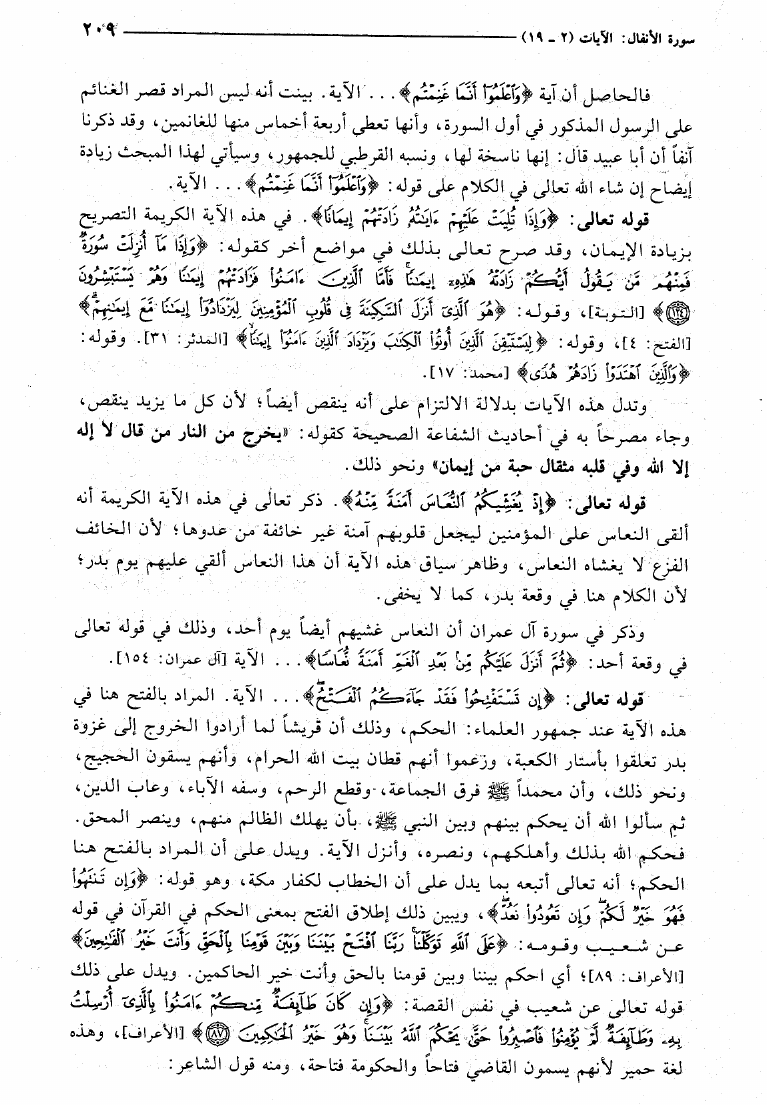 سورة الأنفال: الآيات (٢ ـ ١٩)
٢٠٩
فالحاصل أن آية ﴿وَٱعۡلَمُوٓاْ أَنَّمَا غَنِمۡتُم﴾... الآية. بينت أنه ليس المراد قصر الغنائم
على الرسول المذكور في أول السورة، وأنها تعطى أربعة أخماس منها للغانمين، وقد ذكرنا
آنفاً أن أبا عبيد قال: إنها ناسخة لها، ونسبه القرطبي للجمهور، وسيأتي لهذا المبحث زيادة
إيضاح إن شاء الله تعالى في الكلام على قوله: ﴿وَٱعۡلَمُوٓاْ أَنَّمَا غَنِمۡتُم﴾... الآية.
قوله تعالى: ﴿وَإِذَا تُلِيَتۡ عَلَيۡهِمۡ ءَايَٰتُهُۥ زَادَتۡهُمۡ إِيمَٰنٗا﴾. في هذه الآية الكريمة التصريح
بزيادة الإيمان، وقد صرح تعالى بذلك في مواضع أخر كقوله: ﴿وَإِذَا مَآ أُنزِلَتۡ سُورَةٞ
فَمِنۡهُم مَّن يَقُولُ أَيُّكُمۡ زَادَتۡهُ هَٰذِهِۦٓ إِيمَٰنٗاۚ فَأَمَّا ٱلَّذِينَ ءَامَنُواْ فَزَادَتۡهُمۡ إِيمَٰنٗا وَهُمۡ يَسۡتَبۡشِرُونَ
(١٢٤)﴾ [التوبة]، وقوله: ﴿هُوَ ٱلَّذِيٓ أَنزَلَ ٱلسَّكِينَةَ فِي قُلُوبِ ٱلۡمُؤۡمِنِينَ لِيَزۡدَادُوٓاْ إِيمَٰنٗا مَّعَ إِيمَٰنِهِمۡۗ﴾
[الفتح: ٤]، وقوله: ﴿لِيَسۡتَيۡقِنَ ٱلَّذِينَ أُوتُواْ ٱلۡكِتَٰبَ وَيَزۡدَادَ ٱلَّذِينَ ءَامَنُوٓاْ إِيمَٰنٗا﴾ [المدثر: ٣١]. وقوله:
﴿وَٱلَّذِينَ ٱهۡتَدَوۡاْ زَادَهُمۡ هُدٗى﴾ [محمد: ١٧].
وتدل هذه الآيات بدلالة الالتزام على أنه ينقص أيضاً؛ لأن كل ما يزيد ينقص،
وجاء مصرحاً به في أحاديث الشفاعة الصحيحة كقوله: «يخرج من النار من قال لا إله
إلا الله وفي قلبه مثقال حبة من إيمان» ونحو ذلك.
قوله تعالى: ﴿إِذۡ يُغَشِّيكُمُ ٱلنُّعَاسَ أَمَنَةٗ مِّنۡهُ﴾. ذكر تعالى في هذه الآية الكريمة أنه
ألقى النعاس على المؤمنين ليجعل قلوبهم آمنة غير خائفة من عدوها؛ لأن الخائف
الفزع لا يغشاه النعاس، وظاهر سياق هذه الآية أن هذا النعاس ألقي عليهم يوم بدر؛
لأن الكلام هنا في وقعة بدر، كما لا يخفى.
وذكر في سورة آل عمران أن النعاس غشيهم أيضاً يوم أحد، وذلك في قوله تعالى
في وقعة أحد: ﴿ثُمَّ أَنزَلَ عَلَيۡكُم مِّنۢ بَعۡدِ ٱلۡغَمِّ أَمَنَةٗ نُّعَاسٗا﴾... الآية [آل عمران: ١٥٤].
قوله تعالى: ﴿إِن تَسۡتَفۡتِحُواْ فَقَدۡ جَآءَكُمُ ٱلۡفَتۡحُۖ﴾... الآية. المراد بالفتح هنا في
هذه الآية عند جمهور العلماء: الحكم، وذلك أن قريشاً لما أرادوا الخروج إلى غزوة
بدر تعلقوا بأستار الكعبة، وزعموا أنهم قطان بيت الله الحرام، وأنهم يسقون الحجيج،
ونحو ذلك، وأن محمداً ﷺ فرق الجماعة، وقطع الرحم، وسفه الآباء، وعاب الدين،
ثم سألوا الله أن يحكم بينهم وبين النبي ﷺ، بأن يهلك الظالم منهم، وينصر المحق.
فحكم الله بذلك وأهلكهم، ونصره، وأنزل الآية. ويدل على أن المراد بالفتح هنا
الحكم؛ أنه تعالى أتبعه بما يدل على أن الخطاب لكفار مكة، وهو قوله: ﴿وَإِن تَنتَهُواْ
فَهُوَ خَيۡرٞ لَّكُمۡۖ وَإِن تَعُودُواْ نَعُدۡ﴾، ويبين ذلك إطلاق الفتح بمعنى الحكم في القرآن في قوله
عن شعيب وقومه: ﴿عَلَى ٱللَّهِ تَوَكَّلۡنَاۚ رَبَّنَا ٱفۡتَحۡ بَيۡنَنَا وَبَيۡنَ قَوۡمِنَا بِٱلۡحَقِّ وَأَنتَ خَيۡرُ ٱلۡفَٰتِحِينَ﴾
[الأعراف: ٨٩]؛ أي احكم بيننا وبين قومنا بالحق وأنت خير الحاكمين. ويدل على ذلك
قوله تعالى عن شعيب في نفس القصة: ﴿وَإِن كَانَ طَآئِفَةٞ مِّنكُمۡ ءَامَنُواْ بِٱلَّذِيٓ أُرۡسِلۡتُ
بِهِۦ وَطَآئِفَةٞ لَّمۡ يُؤۡمِنُواْ فَٱصۡبِرُواْ حَتَّىٰ يَحۡكُمَ ٱللَّهُ بَيۡنَنَاۚ وَهُوَ خَيۡرُ ٱلۡحَٰكِمِينَ (٨٧)﴾ [الأعراف]، وهذه
لغة حمير لأنهم يسمون القاضي فتاحاً والحكومة فتاحة، ومنه قول الشاعر: